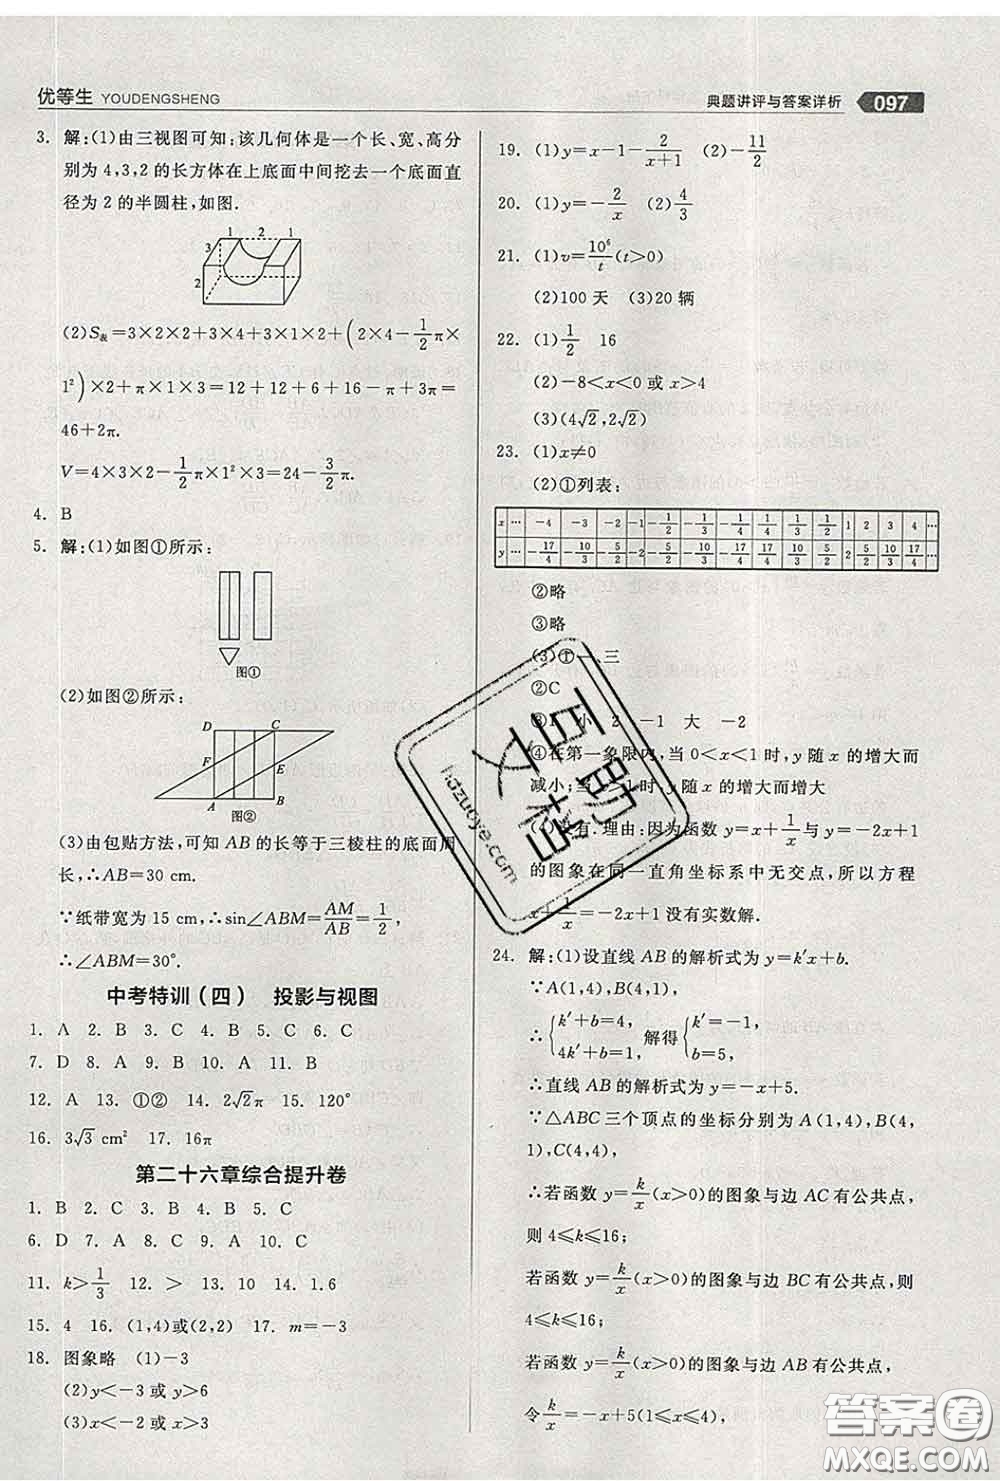 优等生 YOUDENGSHENG
典题讲评与答案详析 097
3. 解:(1)由三视图可知:该几何体是一个长、宽、高分
别为 4,3,2 的长方体在上底面中间挖去一个底面直
径为 2 的半圆柱,如图.
1 2 1
3
2
(2)S表=3×2×2+3×4+3×1×2+(2×4-1/2π×
1²)×2+π×1×3=12+12+6+16-π+3π=
46+2π.
V=4×3×2-1/2π×1²×3=24-3/2π.
4. B
5. 解:(1)如图①所示:
图①
(2)如图②所示:
D C
F E
A B
图②
(3)由包贴方法,可知 AB 的长等于三棱柱的底面周
长,∴AB=30 cm.
∵纸带宽为 15 cm,∴sin∠ABM=AM/AB=1/2,
∴∠ABM=30°.
中考特训(四) 投影与视图
1. A 2. B 3. C 4. B 5. C 6. C
7. D 8. A 9. B 10. A 11. C
12. A 13. ①② 14. 2√2π 15. 120°
16. 3√3 cm² 17. 16π
第二十六章综合提升卷
1. B 2. C 3. B 4. B 5. C
6. D 7. C 8. D 9. A 10. C
11. k>1/3 12. > 13. 10 14. 1.6
15. 4 16. (1,4)或(2,2) 17. m=-3
18. 图象略 (1)-3
(2)y<-3 或 y>6
(3)x<-2 或 x>
19. (1)y=x-1-2/(x+1) (2)-11/2
20. (1)y=-2/x (2)4/3
21. (1)v=10⁶/t(t>0)
(2)100 天 (3)20 辆
22. (1)1/2 16
(2)-8<x<0 或 x>4
(3)(4√2,2√2)
23. (1)x≠0
(2)①列表:
x … -4 -3 -2 -1 -1/2 -1/3 -1/4 1/4 1/3 1/2 1 2 3 4 …
y … -17/4 -10/3 -5/2 -2 -5/2 -10/3 -17/4 17/4 10/3 5/2 2 5/2 10/3 17/4 …
②略
③略
(3)①一、三
②C
③1 小 2 -1 大 -2
④在第一象限内,当 0<x<1 时,y 随 x 的增大而
减小;当 x>1时,y 随 x 的增大而增大
没有.理由:因为函数 y=x+1/x与 y=-2x+1
的图象在同一直角坐标系中无交点,所以方程
x+1/x=-2x+1 没有实数解.
24. 解:(1)设直线 AB 的解析式为 y=k′x+b.
∵A(1,4),B(4,1),
∴{k′+b=4, 4k′+b=1, 解得{k′=-1, b=5,
∴直线 AB 的解析式为 y=-x+5.
∵△ABC 三个顶点的坐标分别为 A(1,4),B(4,
1),C(4,4),
∴若函数 y=k/x(x>0)的图象与边 AC 有公共点,
则 4≤k≤16;
若函数 y=k/x(x>0)的图象与边 BC 有公共点,则
4≤k≤16;
若函数 y=k/x(x>0)的图象与边 AB 有公共点,
令k/x=-x+5(1≤x≤4),
百助文档
hdzuoye.com
答案圈
MXQE.COM